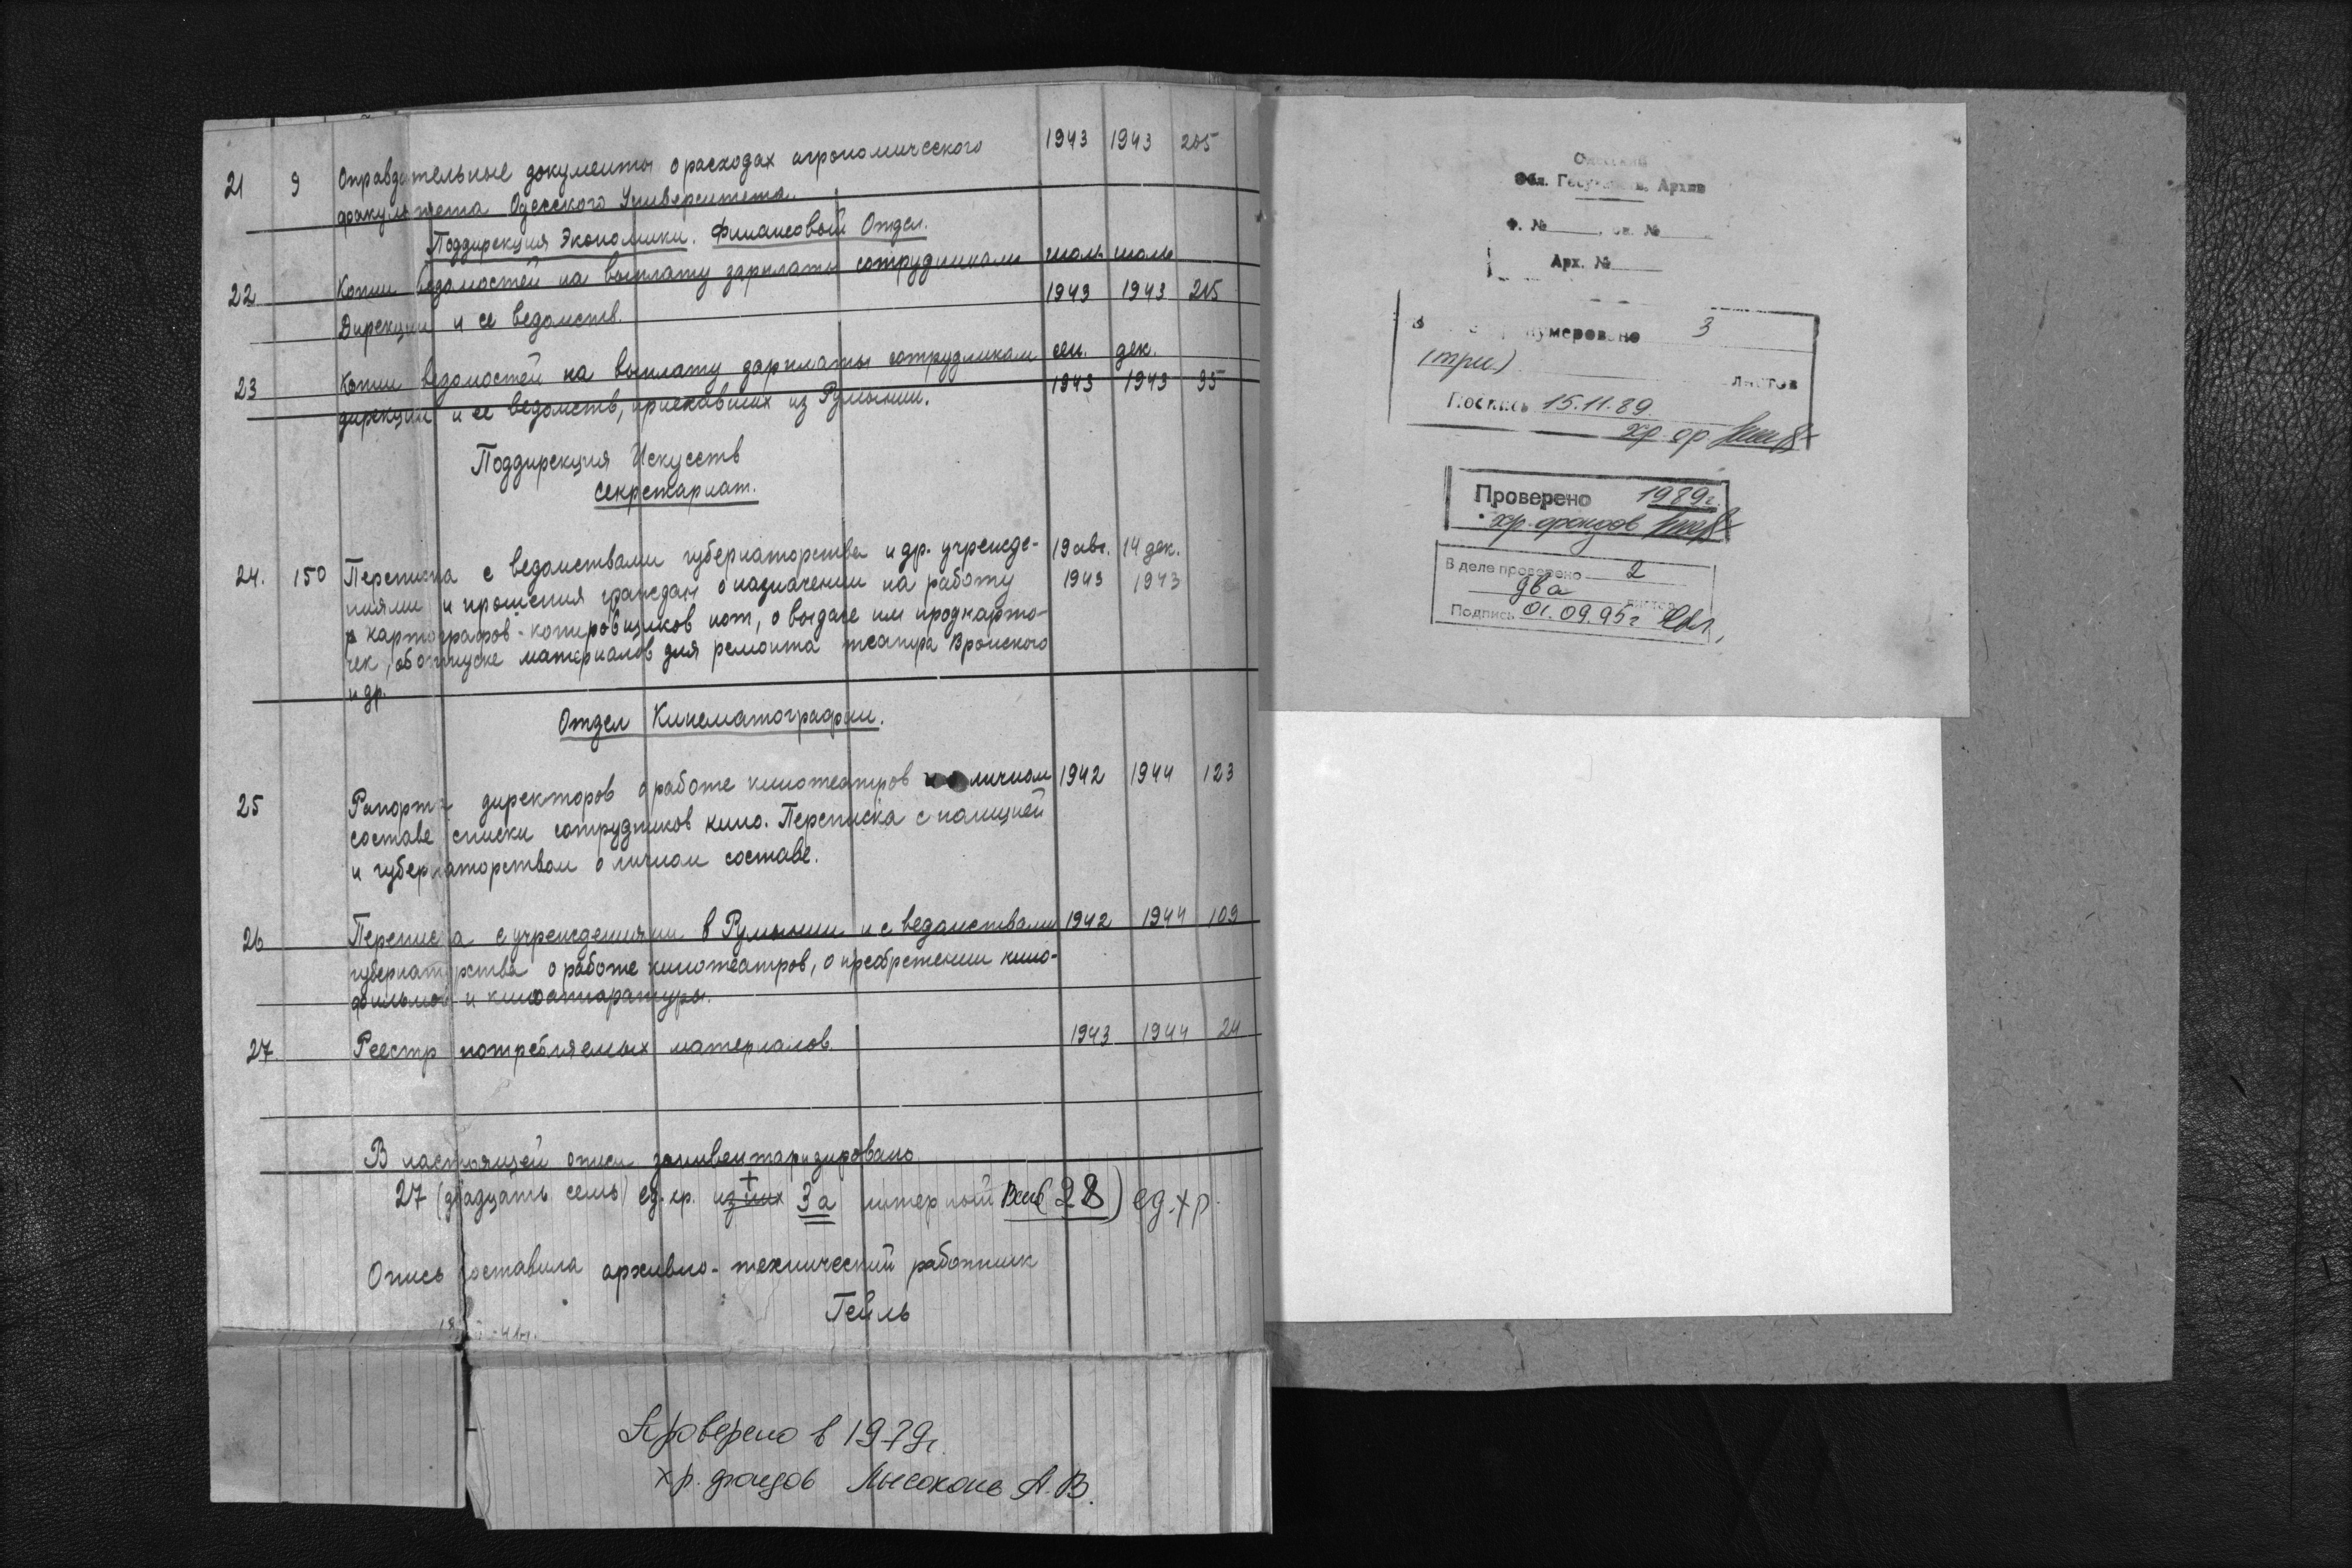 21 9 Оправдательные документы о расходах агрономического 1943 1943 205
факультета Одесского Университета.
Поддирекция Экономики. Финансовый Отдел.
22 Копии ведомостей на выплату зарплаты сотрудникам июль июль
Дирекции и ее ведомств. 1943 1943 215
23 Копии ведомостей на выплату зарплаты сотрудникам сен. дек.
дирекции и ее ведомств, приехавших из Румынии. 1943 1943 95
Поддирекция Искусств
Секретариат.
24. 150 Переписка с ведомствами губернаторства и др. учрежде- 19 авг. 14 дек.
ниями и прошения граждан о назначении на работу 1943 1943
картографов-копировщиков нот, о выдаче им продкарто-
чек, об отпуске материалов для ремонта театра Вронского
и др.
Отдел Кинематографии.
25 Рапорта директоров о работе кинотеатров и о личном 1942 1944 123
составе списки сотрудников кино. Переписка с полицией
и губернаторством о личном составе.
26 Переписка с учреждениями в Румынии и с ведомствами 1942 1944 109
губернаторства о работе кинотеатров, о преобретении кино-
фильмов и киноаппаратуры.
27. Реестр потребляемых материалов. 1943 1944 24
В настоящей описи заинвентаризировано
27 (двадцать семь) ед. хр. из них + 3а литерный (28) ед. хр.
Опись составила архивно-технический работник
Гейль
Проверено в 1979г.
хр. фондов Лысоконь А.В.
Одесский
Обл. Государств. Архив
Ф. № , оп. №
Арх. №
В пронумеровано 3
(три) листов
Роспись 15.11.89.
хр. ф
Проверено 1989г.
хр. фондов
В деле проверено 2
два листов
Подпись 01.09.95г